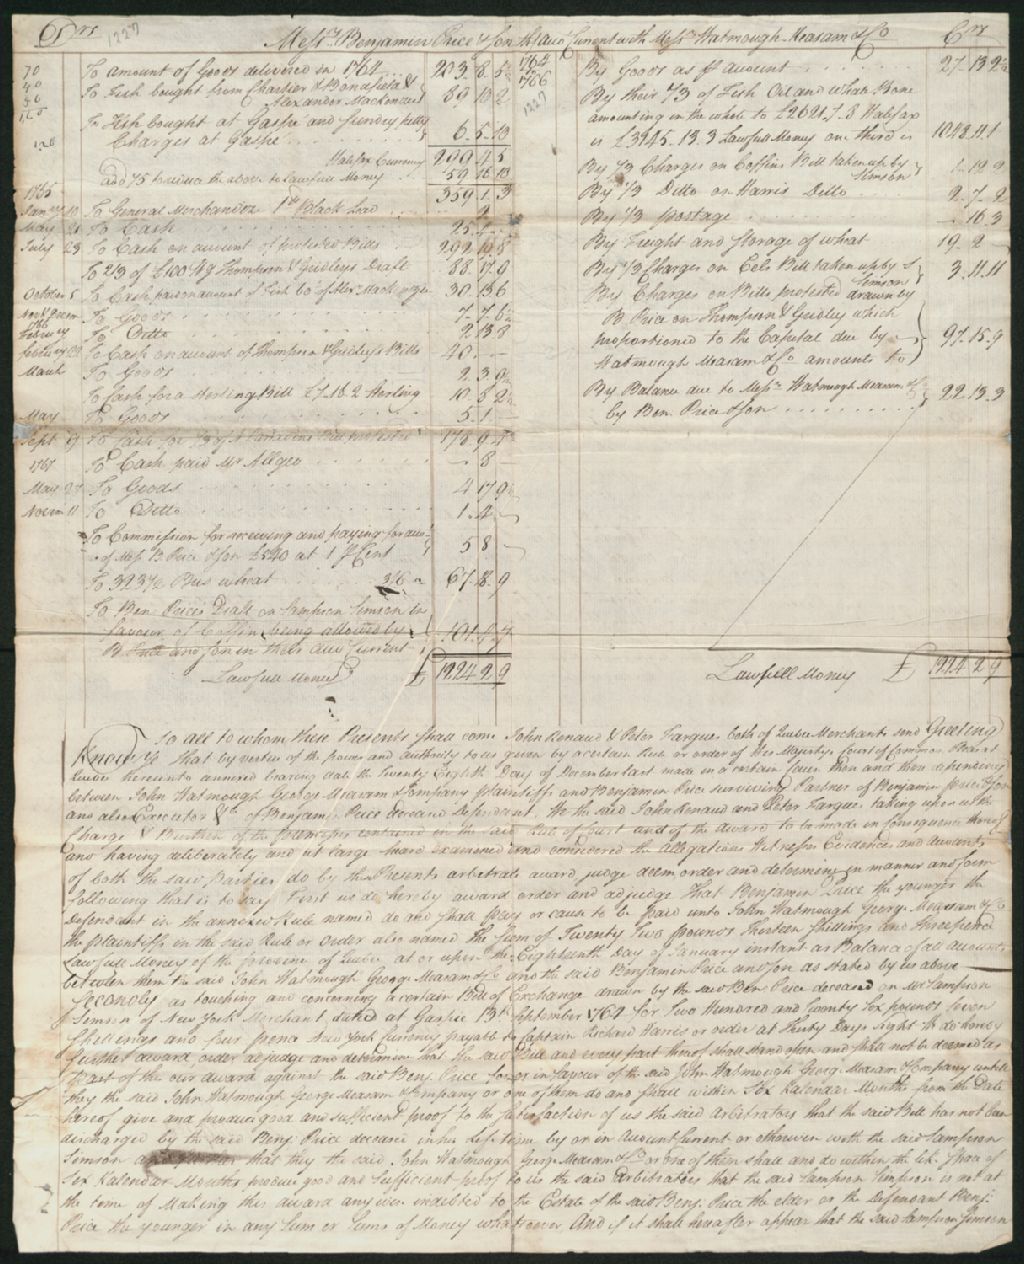 Drs
1227
Messrs. Benjamin Price & Son their Accot. Current with Messrs. Watmough Mearam & Co
Crs
To amount of Goods delivered in 1764 203. 8. 5½
To Fish bought from Chartier & Bonafield & Alexander Mackenzie 89 10 2
To Fish bought at Gaspe and Sundry
Charges at Gaspe 6. 5. 10
Halifax Currency 299. 4. 5
add 1/5 to reduce the above to Lawfull Money 59 16 10
1765 359. 1. 3
To General Merchandize Black Lead
May 21 To Cash 25.
July 23 To Cash on account of protested Bills 292
To 2/3 of £100 NY Thompson & Gridleys Draft 88. 17. 9
October 5 To Cash paid on account of
To Goods 7. 7. 6½
February To Ditto 2. 13. 8
February To Cash on account of Thompson & Gridleys Bills 40. -
March To Goods 2. 3. 9½
To Cash for a Sterling Bill £7.16.2 Sterling 10. 8. 2½
May To Goods 5. 1
Sept 9 To Cash for
1767 To Cash paid Mr Allgeo - 8 -
May 27 To Goods 4 17 9½
Novem 11 To Ditto 1. 4. -
To Commission for receiving and paying for acct
of Mess B. Price & Son £540 at 1 p Cent 5 8 -
To 323¾ Bus wheat 67. 8. 9
To Ben Prices Draft on Sampson Simson in
favour of Coffin being allowed by
B. Price and Son in their Acct Current
Lawfull Money £ 1224. 2. 9
1764
1766
1227
By Goods as p account 27. 13. 2½
By their 1/3 of Fish Oil and Whale Bone
amounting in the whole to £2621. 7. 8 Halifax
is £3145. 13. 3 Lawfull Money one third is 1048. 11. 1
By 1/3 Charges on Coffins Bill taken up by
Simson
By 1/3 Ditto on Harris Ditto 2. 7. 2
By 1/3 Postage - 16. 3
By Freight and Storage of wheat 19. 2 -
By 1/3 Charges on Bill taken up by
Simson 3. 11. 11
By Charges on Bills protested drawn by
B. Price on Thompson & Gridley which
proportioned to the Capital due by
Watmough Mearam & Co amounts to 97. 15. 9
By Balance due to Messrs Watmough Mearam & Co
by Ben. Price & Son 22. 13. 3
Lawfull Money £ 1224. 2. 9
To all to whom these Presents shall come John Renaud & Peter Fargues both of Quebec Merchants send Greeting
Know Ye that by vertue of the power and authority to us given by a certain Rule or order of His Majestys Court of Common Pleas at
Quebec hereunto annexed bearing date the Twenty Eighth Day of December last made in a certain Cause then and there depending
between John Watmough George Mearam & Company Plaintiffs and Benjamin Price surviving Partner of Benjamin Price & Son
and also Executor &c of Benjamin Price deceased Defendant. We the said John Renaud and Peter Fargues taking upon us the
Charge & Burthen of the premisses contained in the said Rule of Court and of the award to be made in consequence thereof
and having deliberately and at large heard examined and considered the Allegations Witnesses Evidences and Accounts
of both the said Parties do by these Presents arbitrate award judge deem order and determine in manner and form
following that is to say First we do hereby award order and adjudge that Benjamin Price the younger the
Defendant in the annexed Rule named do and shall pay or cause to be paid unto John Watmough George Mearam & Co
the Plaintiffs in the said Rule or Order also named the Sum of Twenty Two pounds thirteen shillings and threepence
Lawfull Money of the Province of Quebec at or upon the Eighteenth Day of January instant as Balance of all accounts
between them the said John Watmough George Mearam & Co and the said Benjamin Price and Son as stated by us above
Secondly as touching and concerning a certain Bill of Exchange drawn by the said Ben: Price deceased on Mr Sampson
Simson of New York Merchant dated at Gaspee 13th September 1764 for Two Hundred and Twenty Six pounds seven
shillings and four pence New York Currency payable to Captain Richard Harris or order at Thirty Days sight We do hereby
further award order adjudge and determine that the said Bill and every part thereof shall stand open and shall not be deemed as
Part of this our award against the said Benj. Price for or in favour of the said John Watmough George Mearam & Company untill
they the said John Watmough George Mearam & Company or one of them do and shall within Six Kalendar Months from the Date
hereof give and produce good and sufficient proof to the satisfaction of us the said Arbitrators that the said Bill has not been
discharged by the said Benj. Price deceased in his Life time by or in Account Current or otherwise with the said Sampson
Simson that they the said John Watmough George Mearam & Co or one of them shall and do within the like Space of
Six Kalendar Months produce good and sufficient proof to us the said Arbitrators that the said Sampson Simpson is not at
the time of Making this award any wise indebted to the Estate of the said Benj. Price the elder or the Defendant Benj:
Price the younger in any Sum or Sums of Money whatsoever And if it shall hereafter appear that the said Sampson Simson